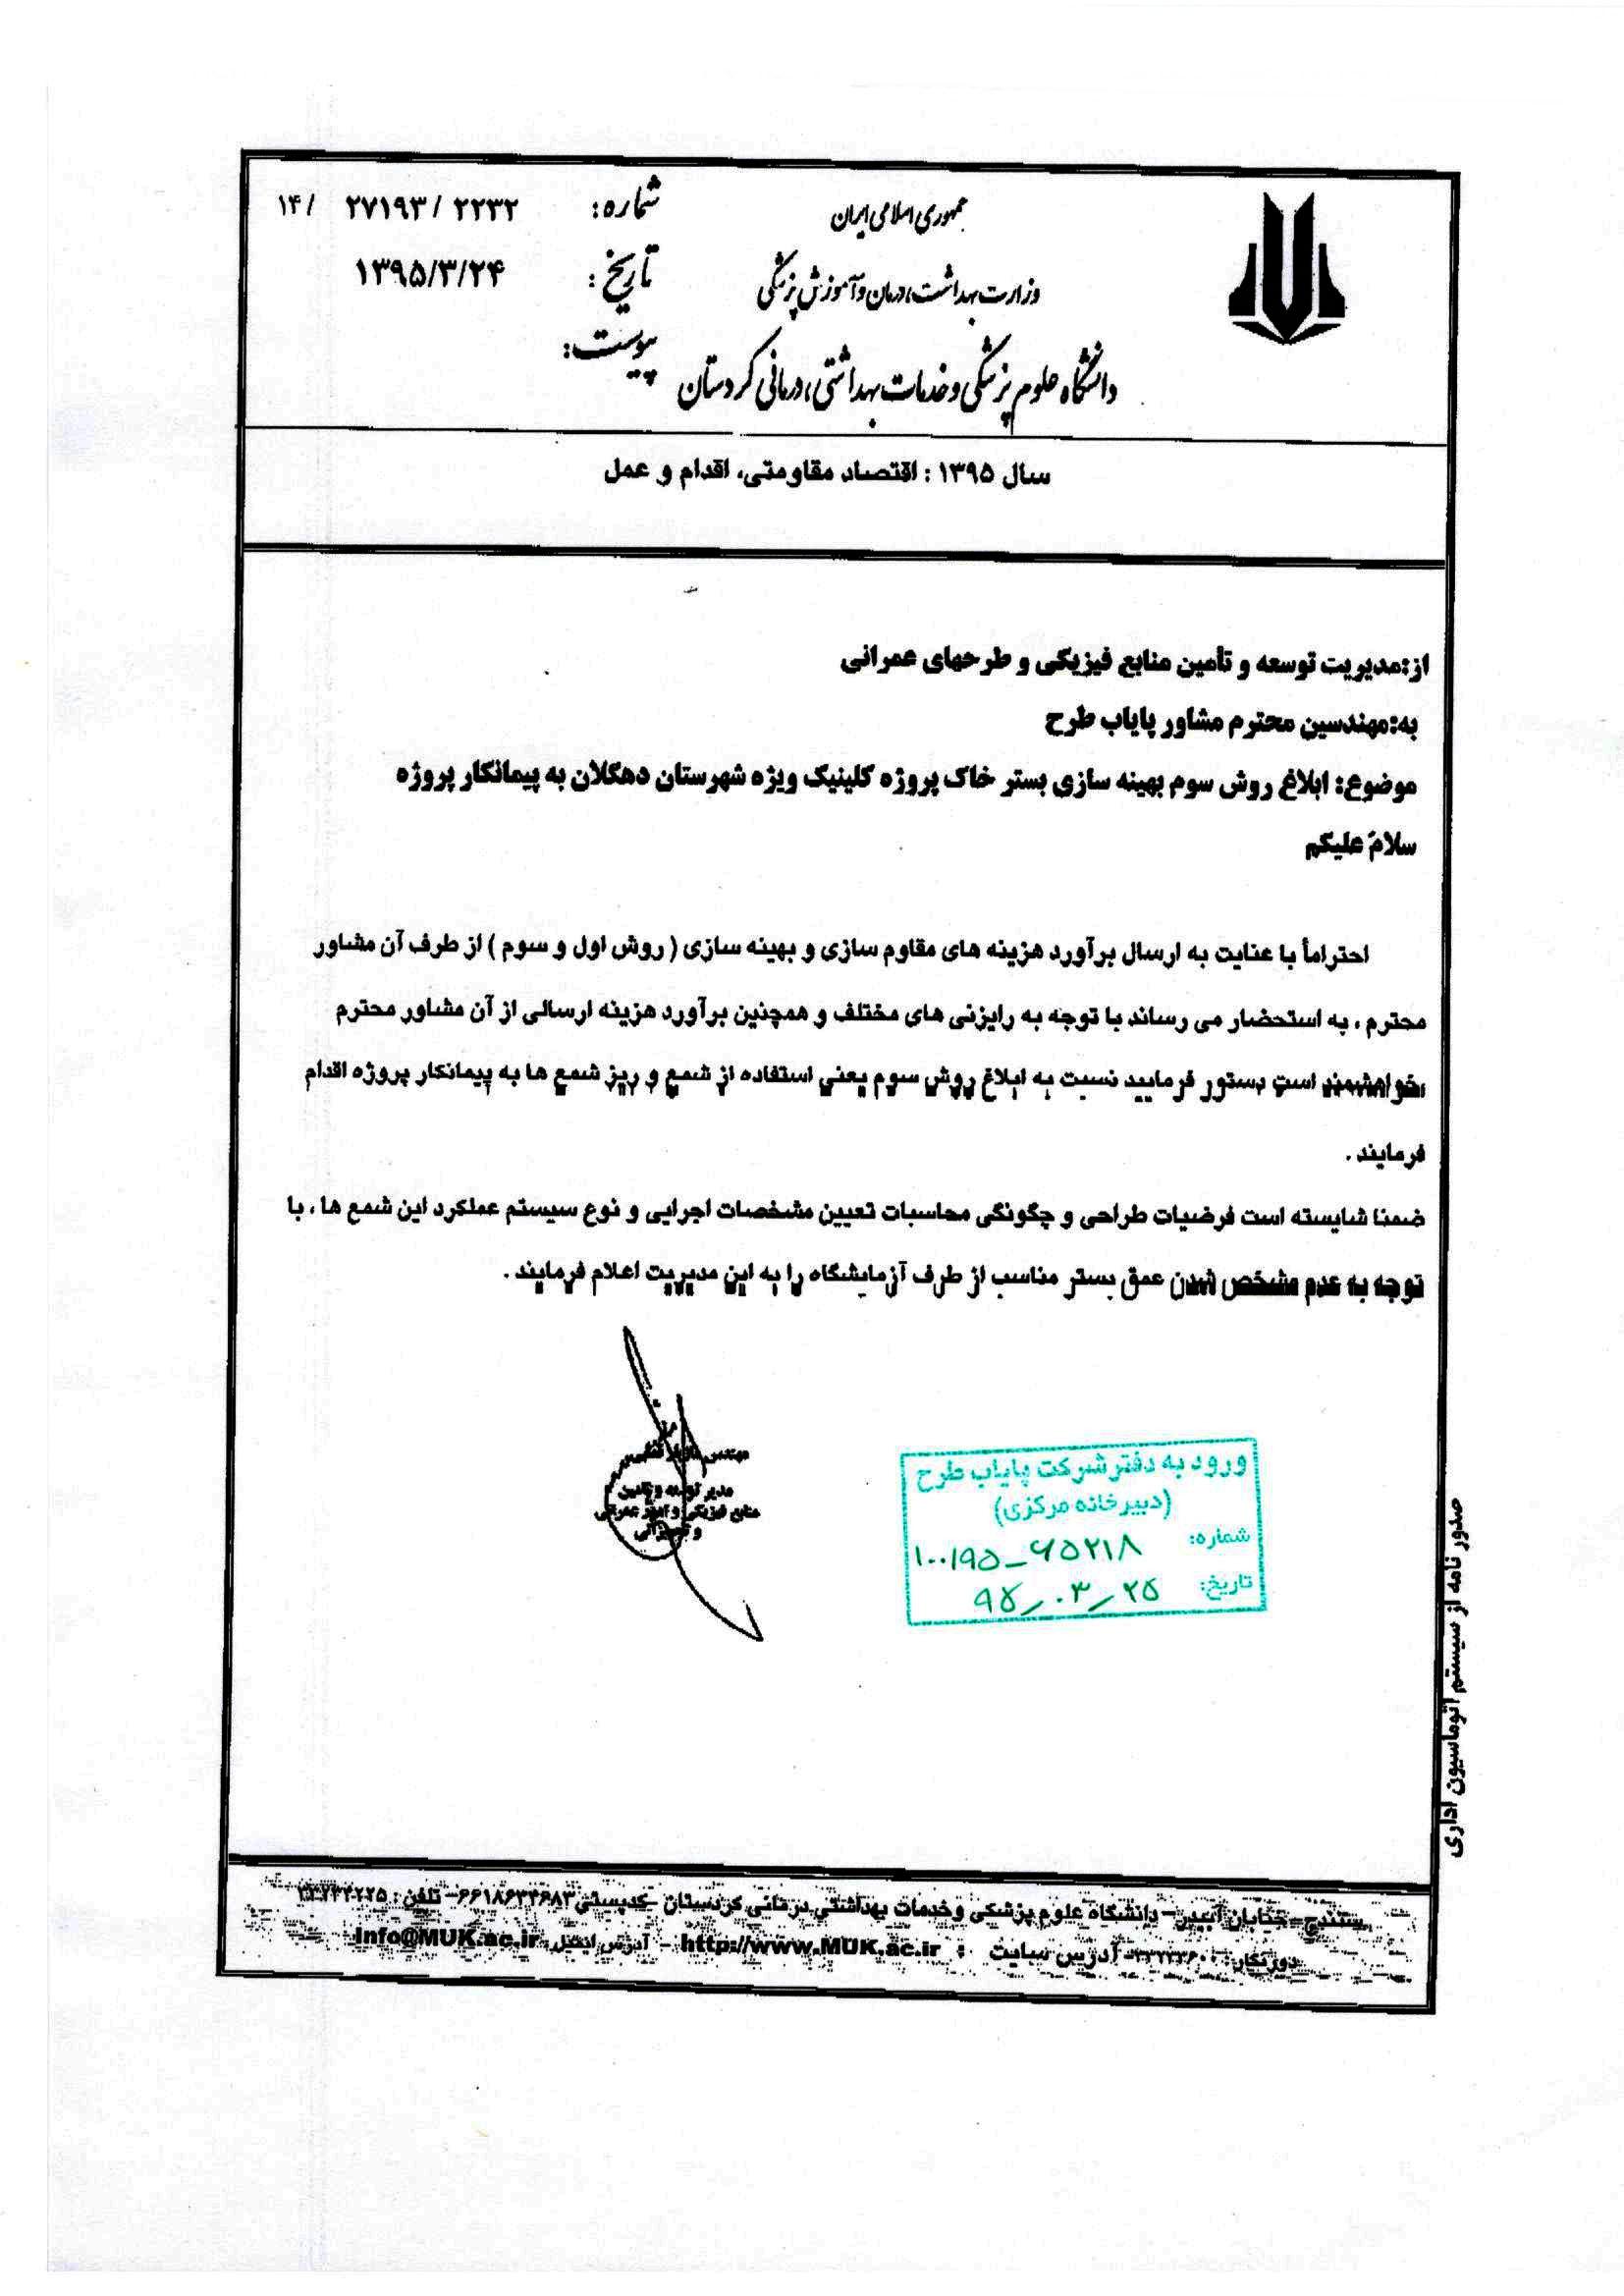 جمهوری اسلامی ایران
وزارت بهداشت، درمان و آموزش پزشکی
دانشگاه علوم پزشکی و خدمات بهداشتی، درمانی کردستان
شماره: ۲۲۳۲ /۲۷۱۹۳ /۱۴
تاریخ: ۱۳۹۵/۳/۲۴
پیوست:
سال ۱۳۹۵ : اقتصاد مقاومتی، اقدام و عمل
از:مدیریت توسعه و تأمین منابع فیزیکی و طرحهای عمرانی
به:مهندسین محترم مشاور پایاب طرح
موضوع: ابلاغ روش سوم بهینه سازی بستر خاک پروژه کلینیک ویژه شهرستان دهگلان به پیمانکار پروژه
سلامٌ علیکم
احتراماً با عنایت به ارسال برآورد هزینه های مقاوم سازی و بهینه سازی ( روش اول و سوم ) از طرف آن مشاور
محترم ، به استحضار می رساند با توجه به رایزنی های مختلف و همچنین برآورد هزینه ارسالی از آن مشاور محترم
خواهشمند است دستور فرمایید نسبت به ابلاغ روش سوم یعنی استفاده از شمع و ریز شمع ها به پیمانکار پروژه اقدام
فرمایند .
ضمنا شایسته است فرضیات طراحی و چگونگی محاسبات تعیین مشخصات اجرایی و نوع سیستم عملکرد این شمع ها ، با
توجه به عدم مشخص شدن عمق بستر مناسب از طرف آزمایشگاه را به این مدیریت اعلام فرمایند .
مهندس
مدیر توسعه و تامین
منابع فیزیکی و امور عمرانی
ورود به دفتر شرکت پایاب طرح
(دبیرخانه مرکزی)
شماره: ۱۰۰/۹۵-۶۵۲۱۸
تاریخ: ۹۵-۰۳-۲۵
صدور نامه از سیستم اتوماسیون اداری
سنندج- خیابان آبیدر- دانشگاه علوم پزشکی و خدمات بهداشتی درمانی کردستان -کدپستی ۶۶۱۸۶۳۴۶۸۳- تلفن:
دورنگار: آدرس سایت : http://www.MUK.ac.ir - آدرس ایمیل: Info@MUK.ac.ir